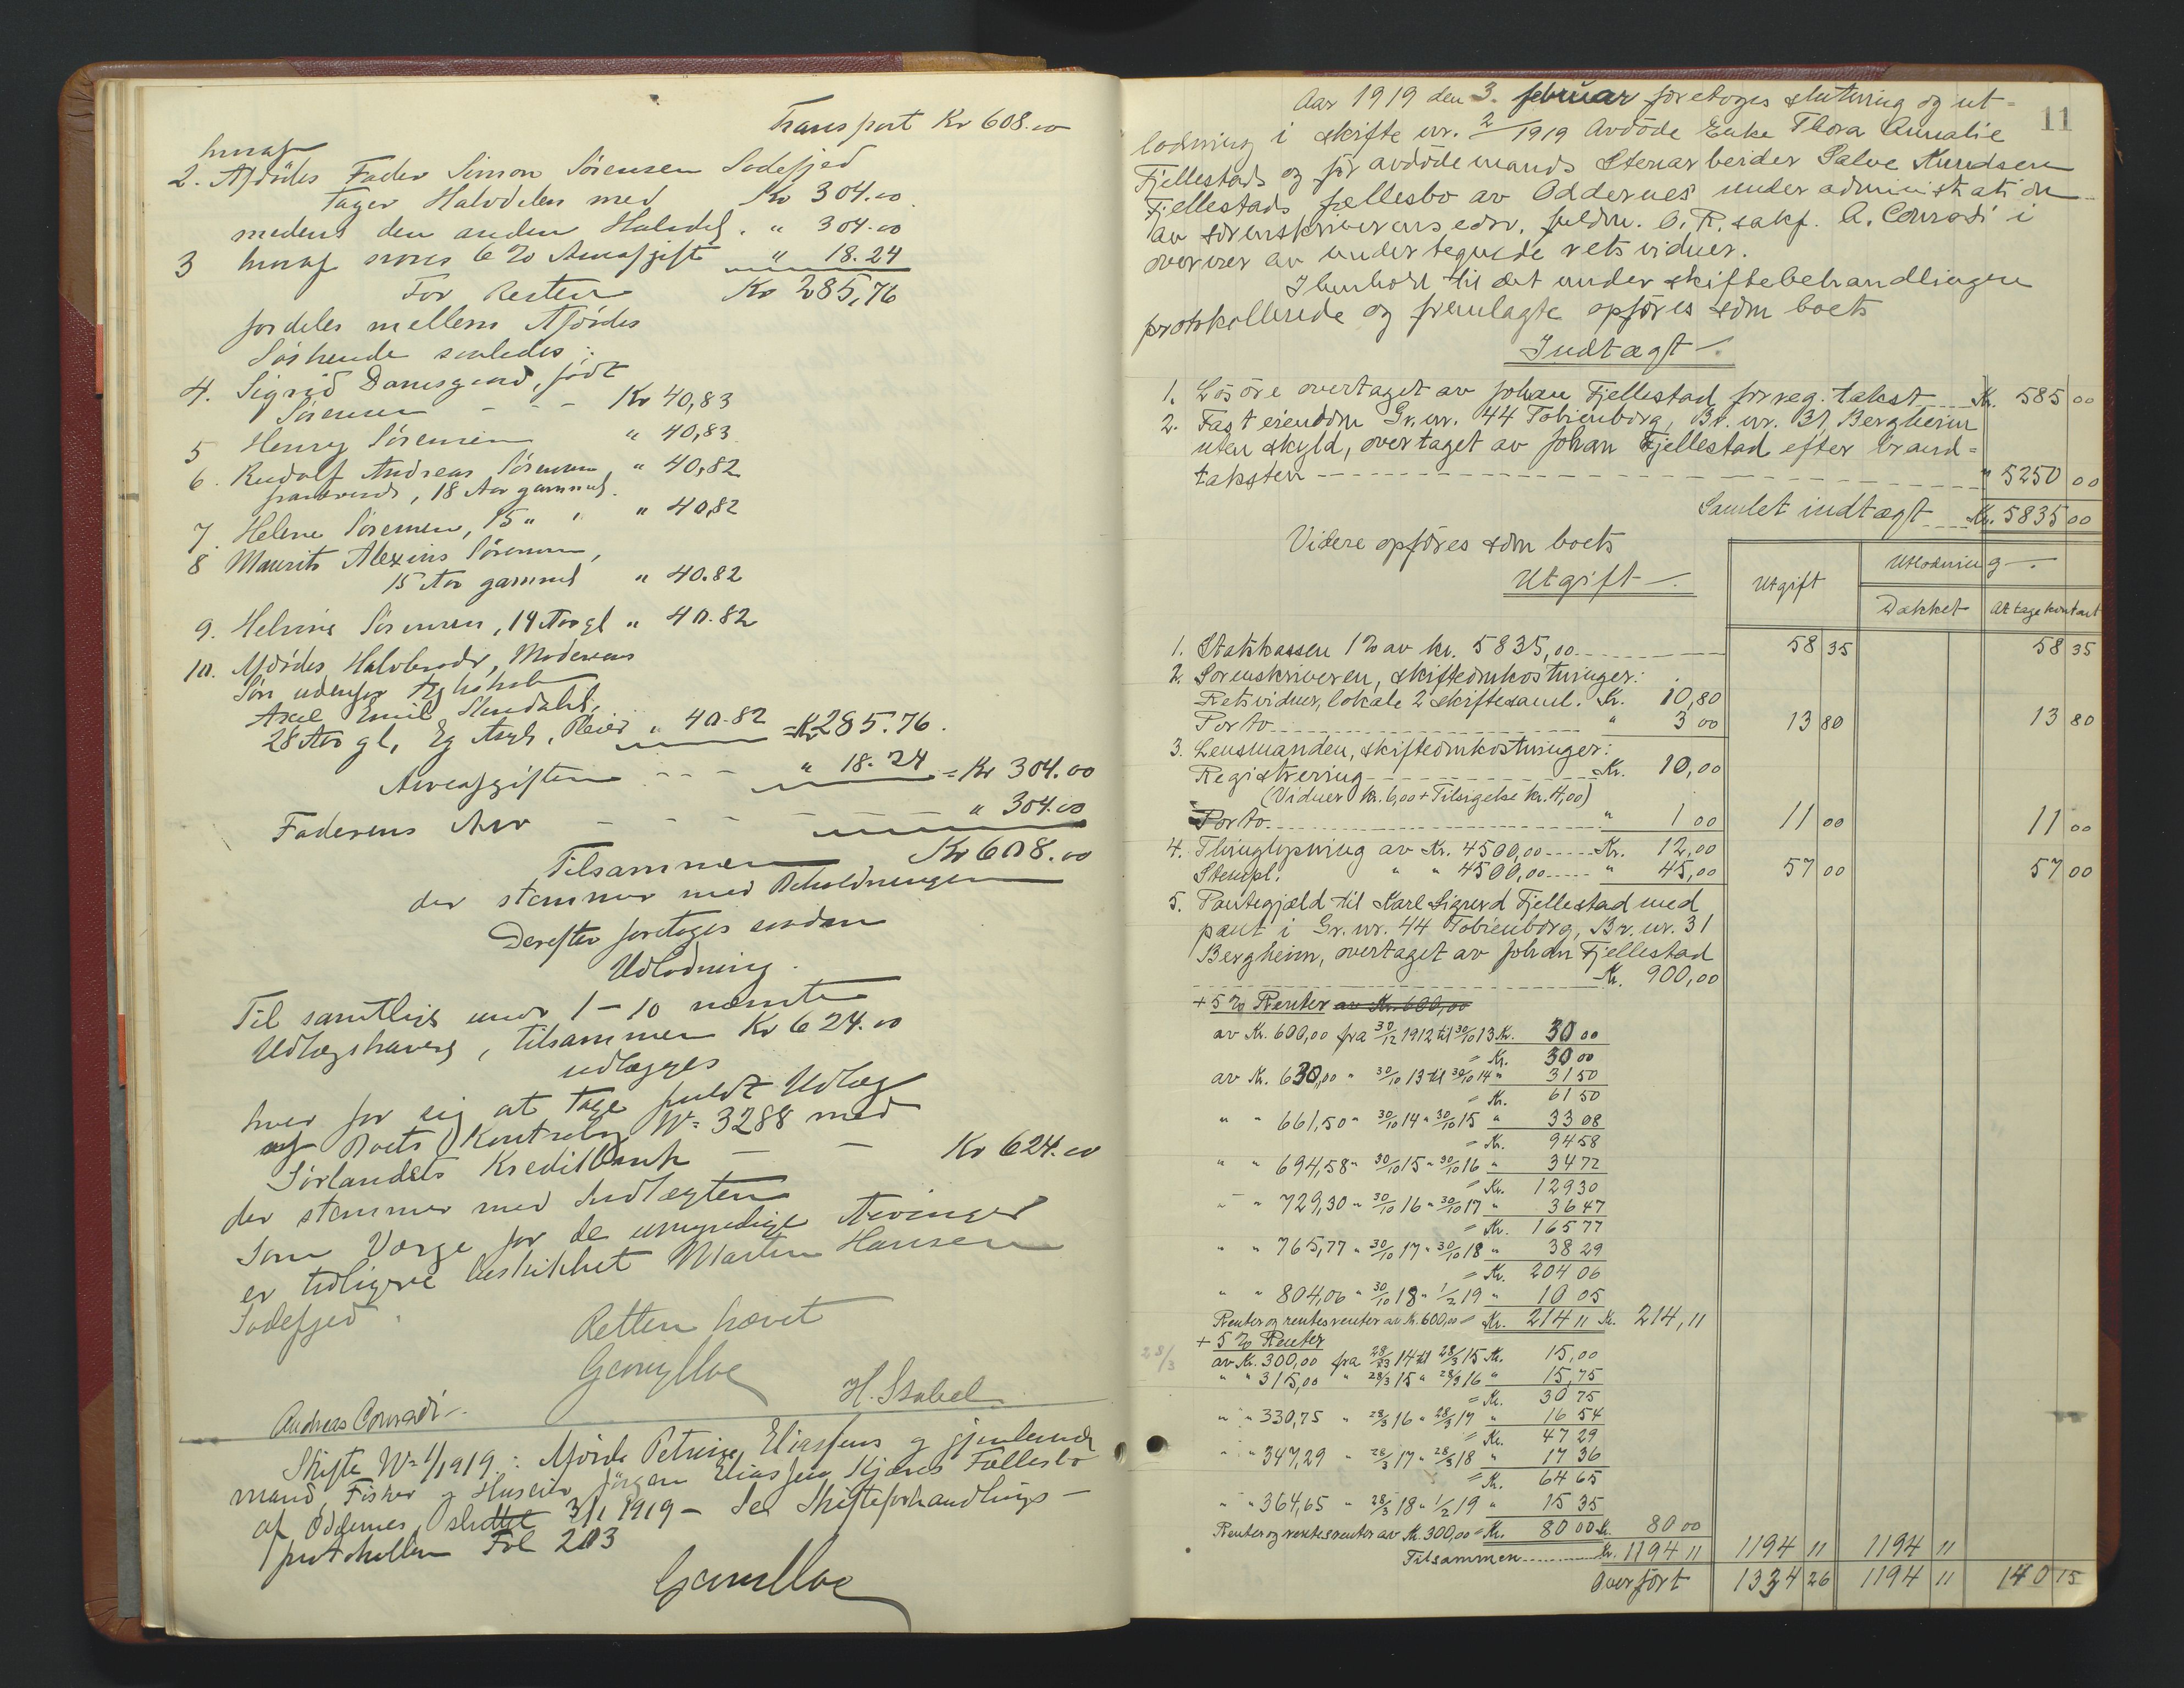 Transport Kr 608.00
hvoraf
2. Afdødes Fader Simon Sørensen Sodefjed
tager Halvdelen med Kr 304.00
medens den anden Halvdel " 304.00
3 hvoraf svares 6 % Arveafgift " 18.24
For Resten Kr 285,76
fordeles mellem Afdødes
Søskende saaledes:
4. Sigrid Damsgaard, født
Sørensen - - - Kr 40,83
5 Henry Sørensen " 40,83
6. Rudolf Andreas Sørensen, " 40,82
fraværende, 18 Aar gammel.
7. Helene Sørensen, 15 " " " 40,82
8 Maurits Alexius Sørensen,
15 Aar gammel " 40.82
9. Helvine Sørensen, 14 Aar gl " 40.82
10. Afdødes Halvbroder, Moderens
Søn udenfor Ægteskab
Axel Emil
28 Aar gl, Eg Asyl, " 40.82 = Kr 285.76.
Arveafgiften - - - " 18.24 = Kr 304.00
Faderens Arv - - - - - " 304.00
Tilsammen Kr 608.00
der stemmer med Beholdningen
Derefter foretoges saadan
Udlodning.
Til samtlige under 1-10 nævnte
Udlægshavere, tilsammen Kr 624.00
udlægges
hver for sig at tage fuldt Udlæg
af Boets Kontrabog No 3288 med
Sørlandets Kreditbank - - Kr 624.00
der stemmer med Indtægten
Som Værge for de umyndige Arvinger
er tidligere beskikket Martin Hansen
Sodefjed.
Retten hævet
H. Stabel
Andreas Conradi.
Skifte No 1/1919: Afdøde Petrine Eliassens og gjenlevende
mand, Fisker og Huseier Jørgen Eliassen Kjæres Fællesbo
af Oddernes, sluttet 3/1 1919 - Se Skifteforhandlings-
protokollen Fol 203
11
Aar 1919 den 3. februar foretoges slutning og ut-
lodning i skifte nr. 2/1919 Avdöde Enke Thora Annalie
Fjellestads og för avdöde mands Stenarbeider Salve Knudsen
Fjellestads fællesbo av Oddernes under administration
av sorenskriverens edsv. fuldm. O.R.sakf. A. Conradi i
overvær av undertegnede retsvidner.
I henhold til det under skiftebehandlingen
protokollerede og fremlagte opföres som boets
Indtægt.
1. Lösöre overtaget av Johan Fjellestad for reg. takst Kr. 585 00
2. Fast eiendom Gr. nr. 44 Tobienborg, Br. nr. 31 Bergheim
uten skyld, overtaget av Johan Fjellestad efter brand-
taksten " 5250 00
Samlet indtægt Kr. 5835 00
Videre opföres som boets
Utgift.
Utgift Utlodning.
Dækket At tage kontant
1. Statskassen 1% av kr. 5835,00 58 35 58 35
2. Sorenskriveren, skifteomkostninger:
Retsvidner, lokale 2 skiftesaml. Kr. 10,80
Porto " 3 00 13 80 13 80
3. Lensmanden, skifteomkostninger:
Registrering Kr. 10,00
(Vidner kr. 6,00 + Tilsigelse kr. 4,00)
Porto " 1 00 11 00 11 00
4. Thinglysning av Kr. 4500,00 Kr. 12,00
Stempl. " " 4500,00 " 45,00 57 00 57 00
5. Pantegjæld til Karl Sigurd Fjellestad med
pant i Gr. nr. 44 Tobienborg, Br. nr. 31
Bergheim, overtaget av Johan Fjellestad
Kr. 900,00
+ 5 % Renter av Kr. 600,00
av Kr. 600,00 fra 30/12 1912 til 30/10 13 Kr. 30 00
= Kr. 30 00
av Kr. 630,00 " 30/10 13 til 30/10 14 " 31 50
= Kr. 61 50
" " 661,50 " 30/10 14 " 30/10 15 " 33 08
= Kr. 94 58
" " 694,58 " 30/10 15 " 30/10 16 " 34 72
= Kr. 129 30
" " 729,30 " 30/10 16 " 30/10 17 " 36 47
= Kr. 165 77
" " 765,77 " 30/10 17 " 30/10 18 " 38 29
= Kr. 204 06
" " 804,06 " 30/10 18 " 1/2 19 " 10 05
Renter og rentesrenter av Kr. 600,00 = Kr. 214 11 Kr. 214,11
+ 5 % Renter
28/3 av Kr. 300,00 fra 28/3 14 til 28/3 15 Kr. 15,00
" " 315,00 " 28/3 15 " 28/3 16 " 15,75
= Kr. 30 75
" " 330,75 " 28/3 16 " 28/3 17 " 16 54
= Kr. 47 29
" " 347,29 " 28/3 17 " 28/3 18 " 17 36
= Kr. 64 65
" " 364,65 " 28/3 18 " 1/2 19 " 15 35
Renter og rentesrenter av Kr. 300,00 = Kr. 80 00 Kr. 80 00
Tilsammen Kr. 1194 11 1194 11 1194 11
Overfört 1334 26 1194 11 140 15